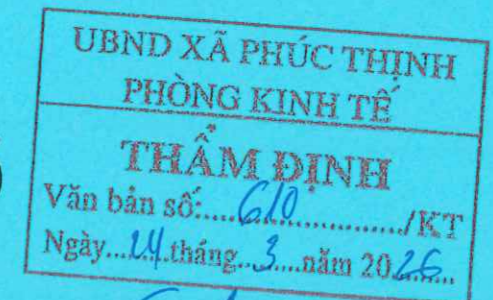 UBND XÃ PHÚC THỊNH
PHÒNG KINH TẾ
THẨM ĐỊNH
Văn bản số:.....610................/KT
Ngày....24.tháng...3....năm 20.26...